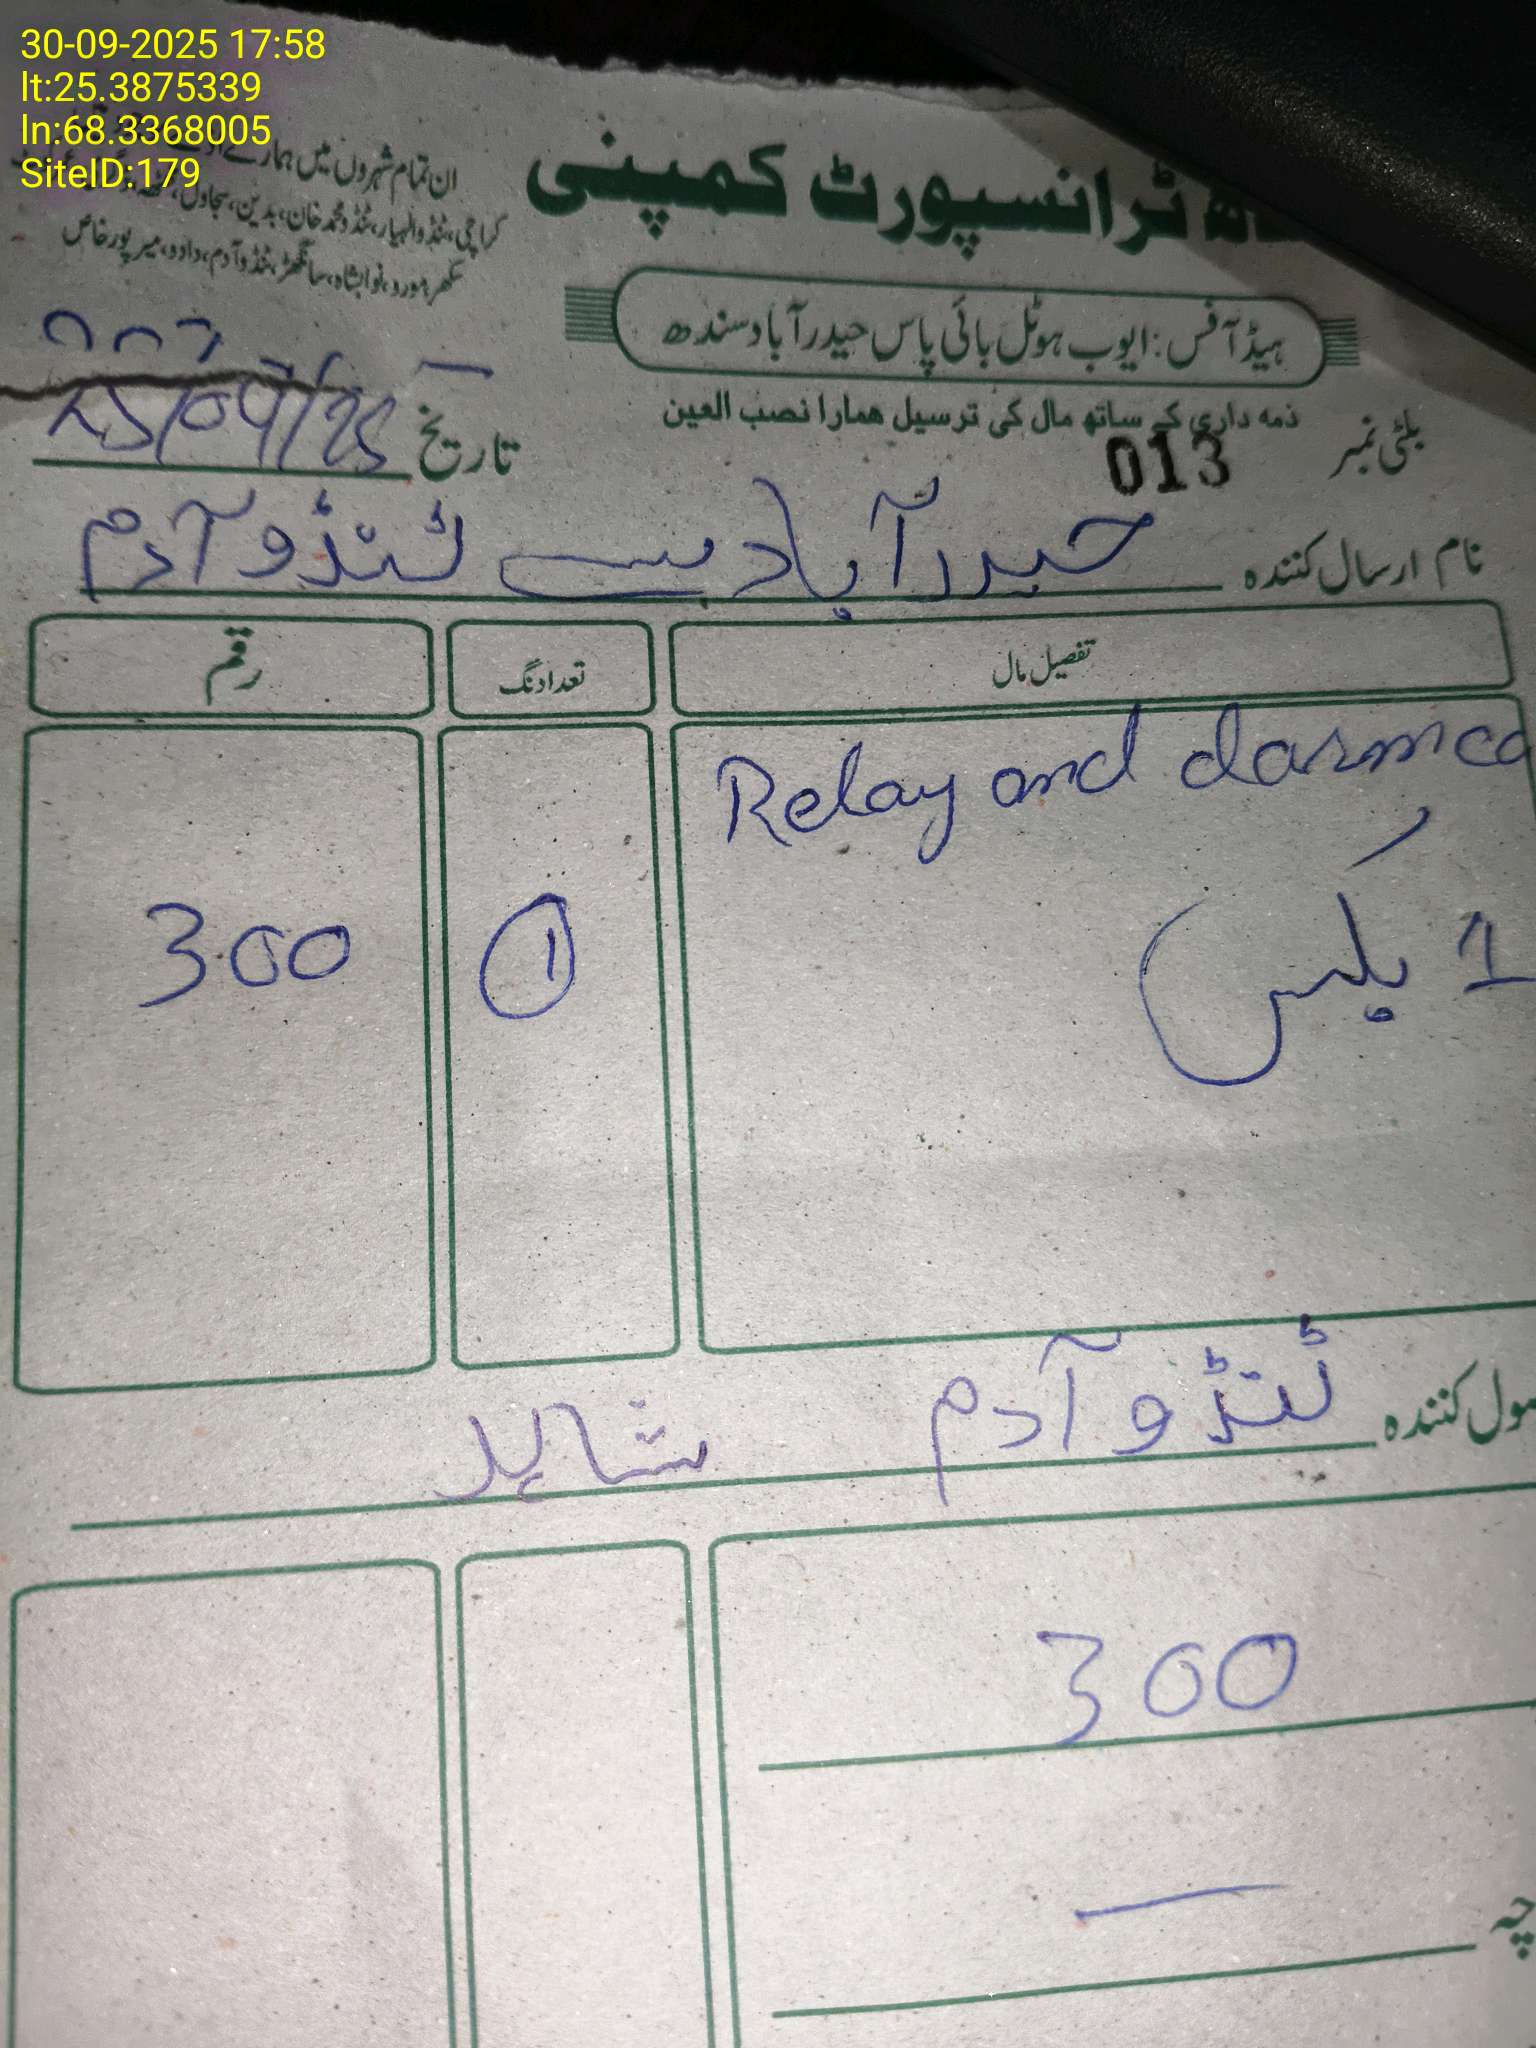 30-09-2025 17:58
lt:25.3875339
ln:68.3368005
SiteID:179
ٹرانسپورٹ کمپنی
ان تمام شہروں میں ہمارے
کراچی، ٹنڈوالہیار، ٹنڈو محمد خان، بدین، سجاول،
سکھر، مورو، نوابشاہ، سانگھڑ، ٹنڈوآدم، دادو، میرپورخاص
ہیڈ آفس: ایوب ہوٹل بائی پاس حیدرآباد سندھ
ذمہ داری کے ساتھ مال کی ترسیل ہمارا نصب العین
بلٹی نمبر 013
تاریخ
نام ارسال کنندہ حیدرآباد سے ٹنڈوآدم
تفصیل مال تعداد نگ رقم
Relay and
1 بکس ① 300
کنندہ ٹنڈوآدم
300